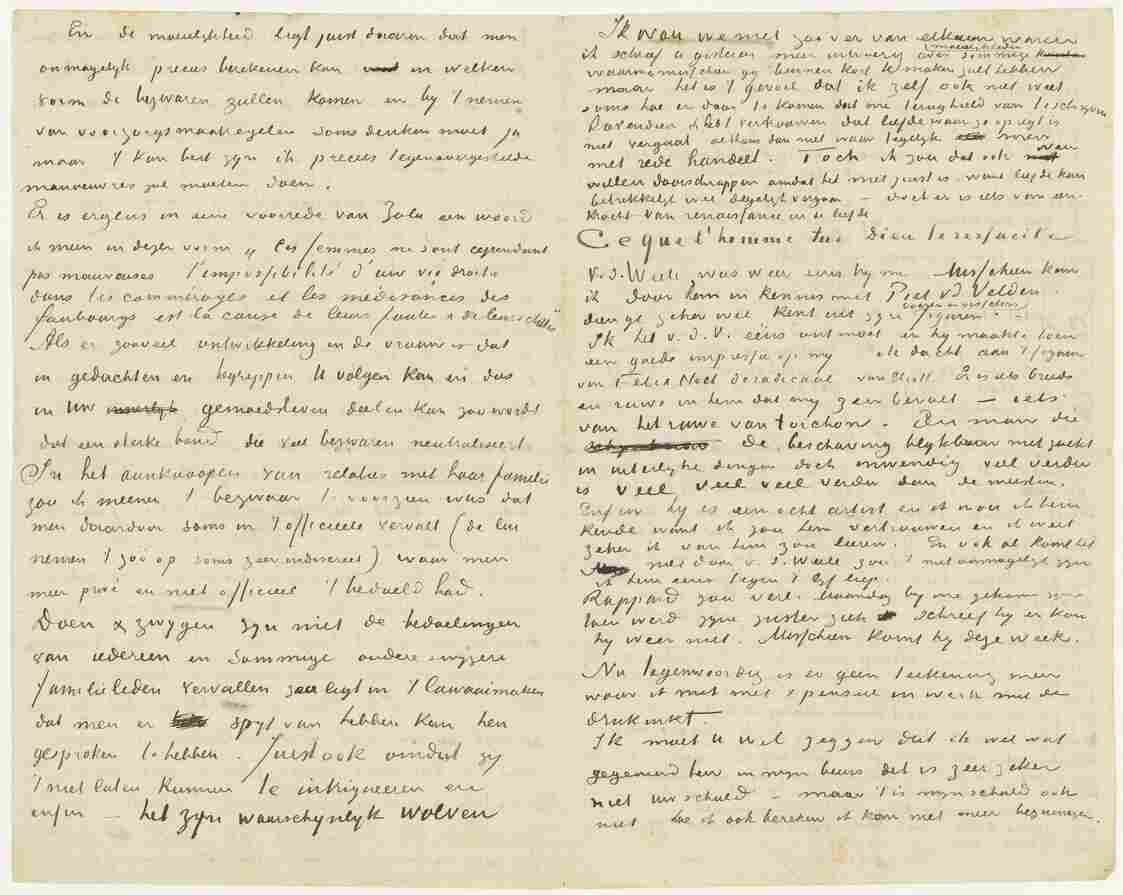 En de moeielykheid ligt juist daarin dat men
onmogelyk precies berekenen kan in welken
vorm de bezwaren zullen komen en by 't nemen
van voorzorgsmaatregelen soms denken moet ja
maar 't kan best zyn ik precies tegenovergestelde
manoeuvres zal moeten doen.
Er is ergens in eene voorrede van Zola een woord
ik meen in dezen vorm „ Ces femmes ne sont cependant
pas mauvaises l'impossibilité d'une vie droite
dans les commérages et les médisances des
faubourgs est la cause de leurs fautes & de leurs chutes”
Als er zooveel ontwikkeling in de vrouw is dat
in gedachten en begrippen U volgen kan en dus
in uw innerlyk gemoedsleven deelen kan zoo wordt
dat een sterke band die veel bezwaren neutraliseert.
In het aanknoopen van relaties met haar familie
zou ik meenen 't bezwaar te voorzien was dat
men daardoor soms in 't officieele vervalt (de lui
nemen 't zoo op soms zeer indiscreet) waar men
meer privé en niet officieel 't bedoeld had.
Doen & zwygen zyn niet de bedoelingen
van iedereen en sommige oudere ongere
familieleden vervallen zeer ligt in 't lawaaimaken
dat men er spyt van hebben kan hen
gesproken te hebben. Juist ook omdat zy
't niet laten kunnen te intrigueeren en
enfin – het zyn waarschynlyk wolven
Ik wou we niet zoo ver van elkaar waren
ik schreef u gisteren meer uitvoerig over sommige moeielykheden
waarmee misschien gy kennis kort te maken zult hebben
maar het is 't gevoel dat ik zelf ook niet weet
soms hoe er door te komen dat me terughield van te schryven
Bovendien & hebt vertrouwen dat liefde waar zy opregt is
niet vergaat althans dan niet waar tegelyk men
met rede handelt. Toch ik zou dat ook weer
willen doorschrappen omdat het niet juist is want liefde kan
betrekkelyk wel degelyk vergaan – doch er is iets van een
kracht van renaissance in de liefde
Ce que l'homme tue Dieu le resuscite
v.d. Weele was weer eens by me. Misschien kom
ik door hem in kennis met Piet v.d. Velden.
denk zeker wel kent uit zyn boeren en visschers figuren.
Ik heb v.d. V. eens ontmoet en hy maakte toen
een goede impressie op my. ik dacht aan 't figuur
van Felix Holt de radicaal van Eliott. Er is iets breeds
en ruws in hem dat my zeer bevalt – iets
van het ruwe van torchon. Een man die
de beschaving blykbaar niet zoekt
in uiterlyke dingen doch inwendig veel verder
is veel veel veel verder dan de meesten.
Enfin hy is een echt artist en ik wou ik hem
kende want ik zou hem vertrouwen en ik weet
zeker ik van hem zou leeren. En ook al komt het
niet door v.d. Weele zou 't niet onmogelyk zyn
ik hem eens tegen 't lyf liep.
Rappard zou verl. Maandag by me gekomen zyn
toen werd zyne zuster ziek schreef hy en kon
hy weer niet. Misschien komt hy deze week.
Nu tegenwoordig is er geen teekening meer
waar ik niet met & penseel in werk met de
drukinkt.
Ik moet u wel zeggen dat ik wel wat
gegeneerd ben in myn beurs dat is zeer zeker
niet uw schuld – maar 't is myn schuld ook
niet hoe ik ook bereken ik kan niet meer bezuinigen.